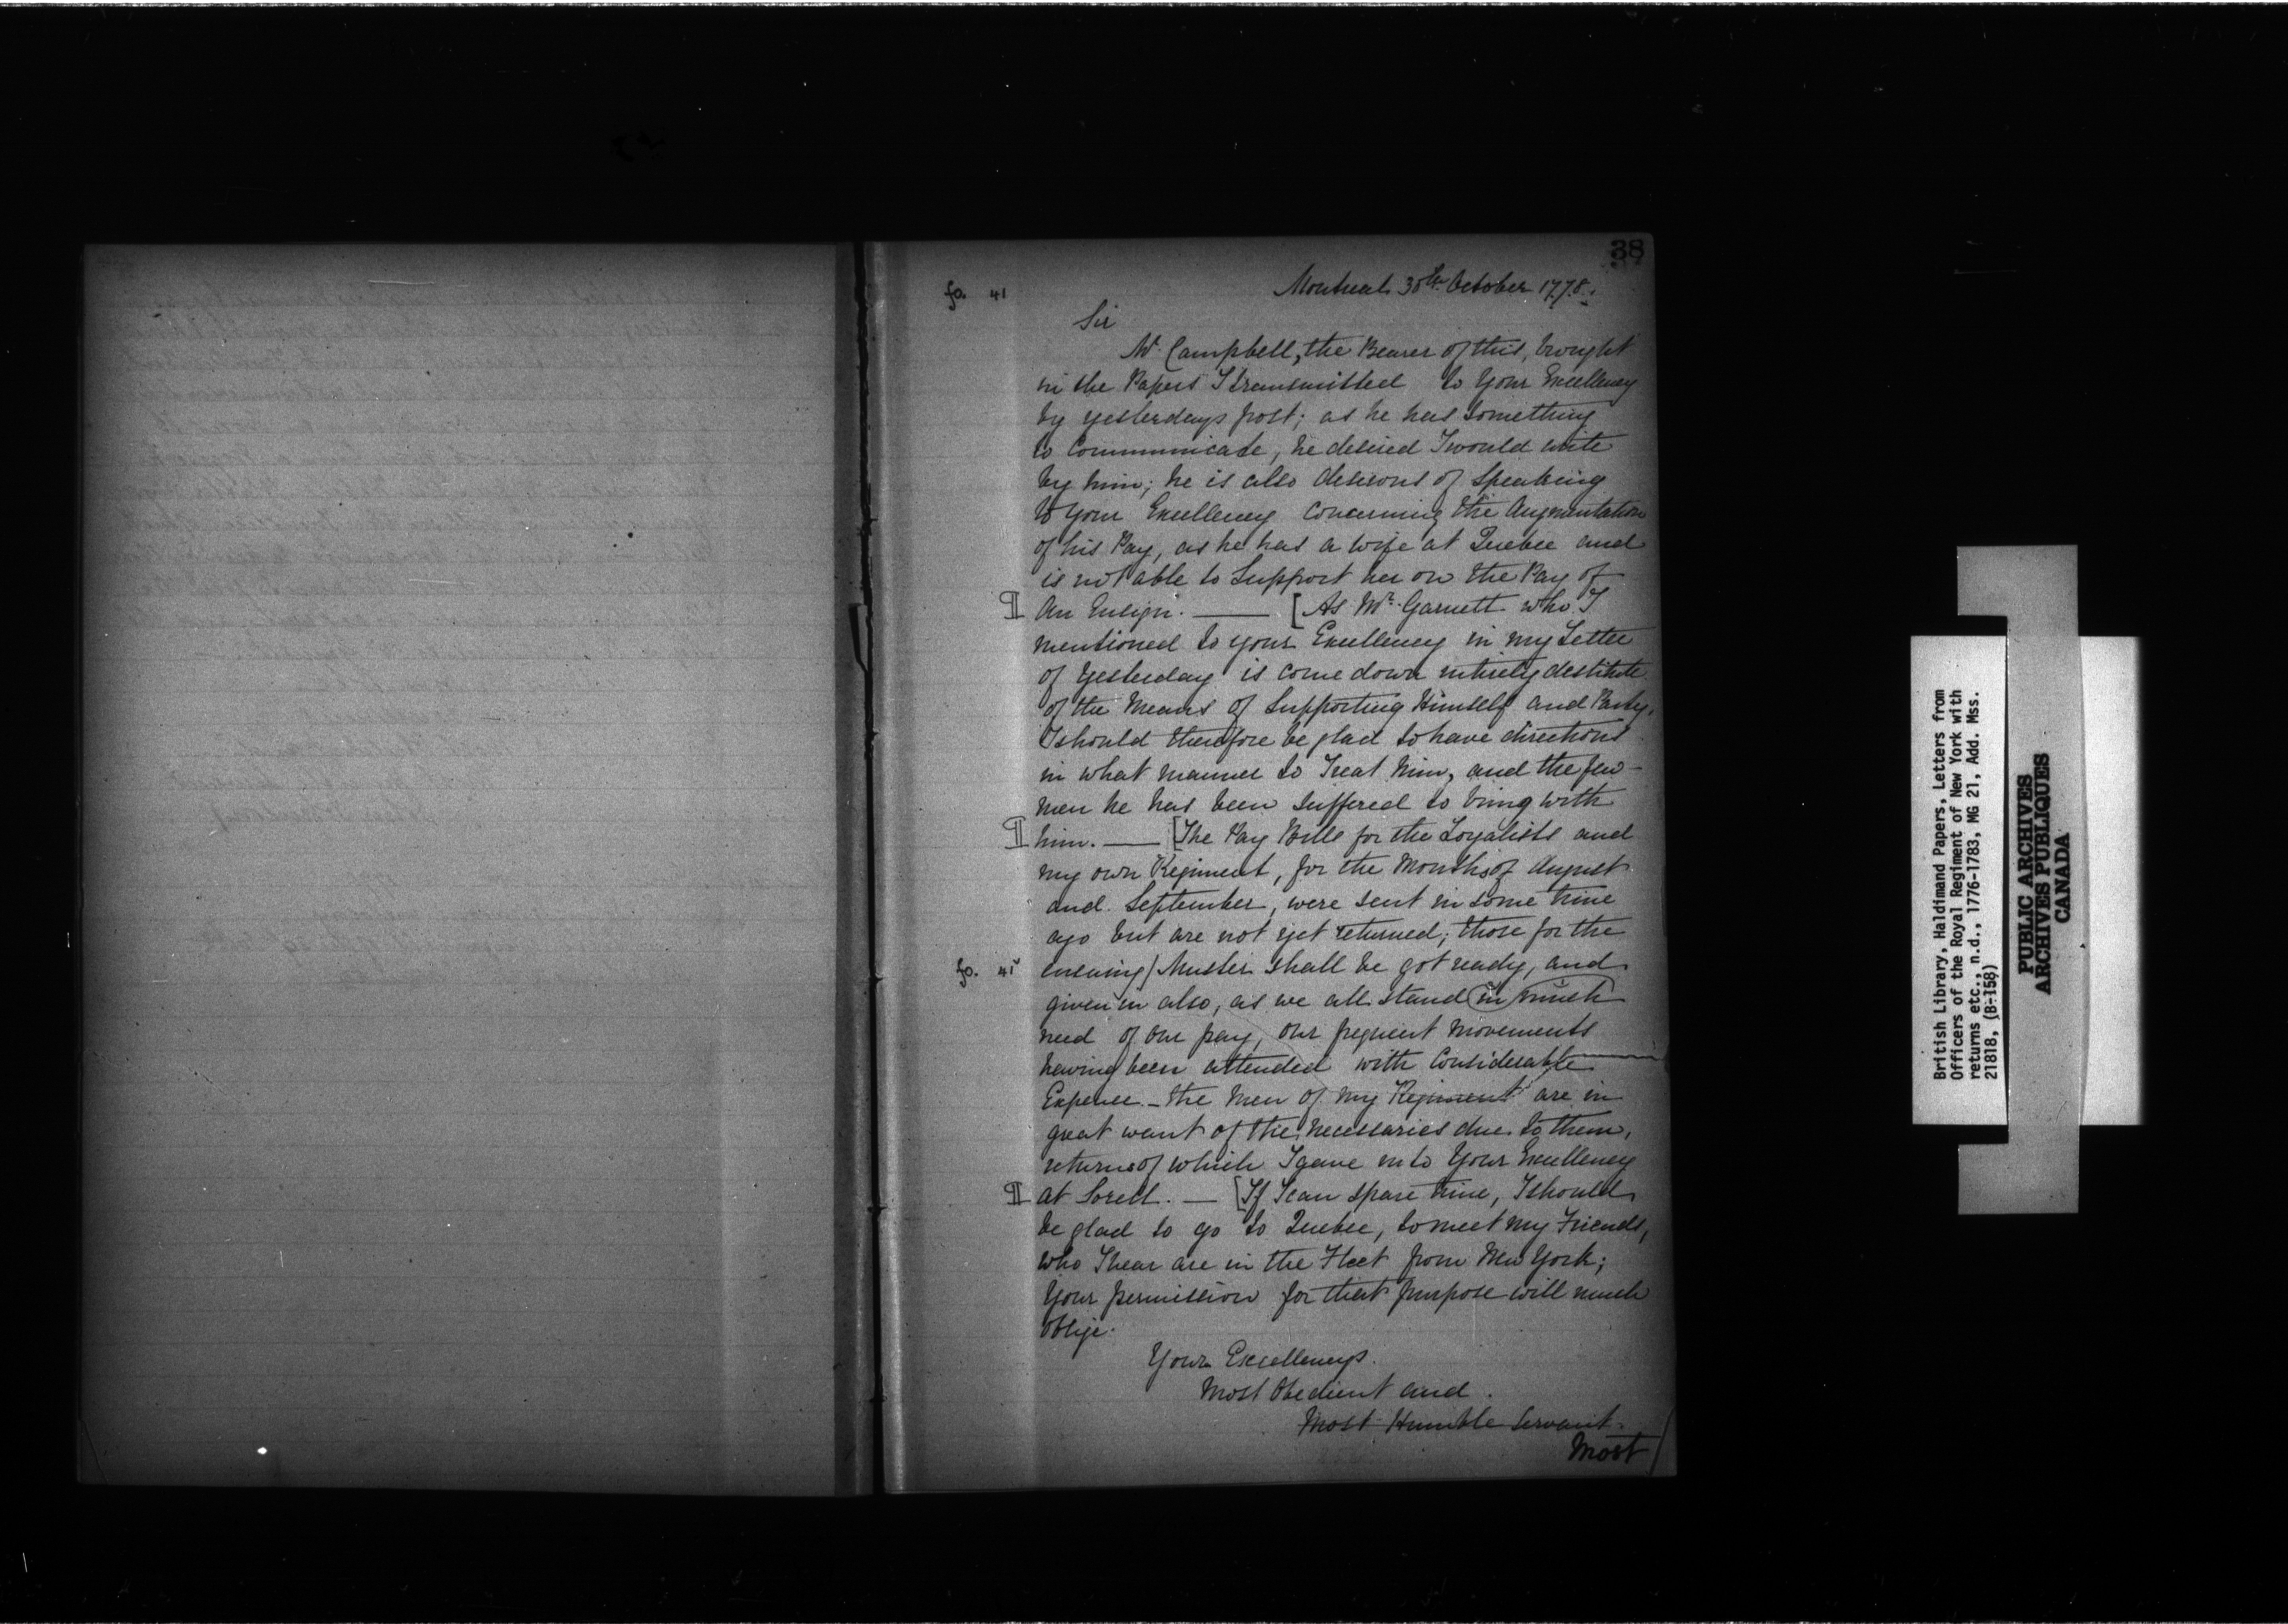 38
fo. 41
Montreal 30th October 1778.
Sir
Mr Campbell, the Bearer of this, brought
in the Papers I transmitted to Your Excellency
by yesterdays post; as he has something
to Communicate, he desired I would write
by him; he is also desirous of Speaking
to Your Excellency Concerning the Augmentation
of his Pay, as he has a wife at Quebec and
is not able to Support her on the Pay of
¶ An Ensign. — [As Mr Garnett who I
mentioned to your Excellency in my Letter
of Yesterday is come down intirely destitute
of the Means of Supporting Himself and Party,
I should therefore be glad to have directions
in what manner to Treat him, and the few
men he has been suffered to bring with
¶ him. — [The Pay Bills for the Loyalists and
my own Regiment, for the Months of August
and September, were sent in some time
ago but are not yet returned; those for the
fo. 41v ensuing / Muster shall be got ready, and
given in also, as we all stand in much
need of our pay, our frequent Movements
having been attended with Considerable
Expence. - the Men of my Regiment are in
great want of the necessaries due to them,
returns of which I gave in to Your Excellency
¶ at Sorell. — [If I can spare time, I should
be glad to go to Quebec, to meet my Friends,
who I hear are in the Fleet from New York;
Your permission for that purpose will much
oblige.
Your Excellencys.
Most Obedient and.
Most Humble Servant.
Most
British Library, Haldimand Papers, Letters from
Officers of the Royal Regiment of New York with
returns etc., n.d., 1776-1783, MG 21, Add. Mss.
21818, (B-158)
PUBLIC ARCHIVES
ARCHIVES PUBLIQUES
CANADA